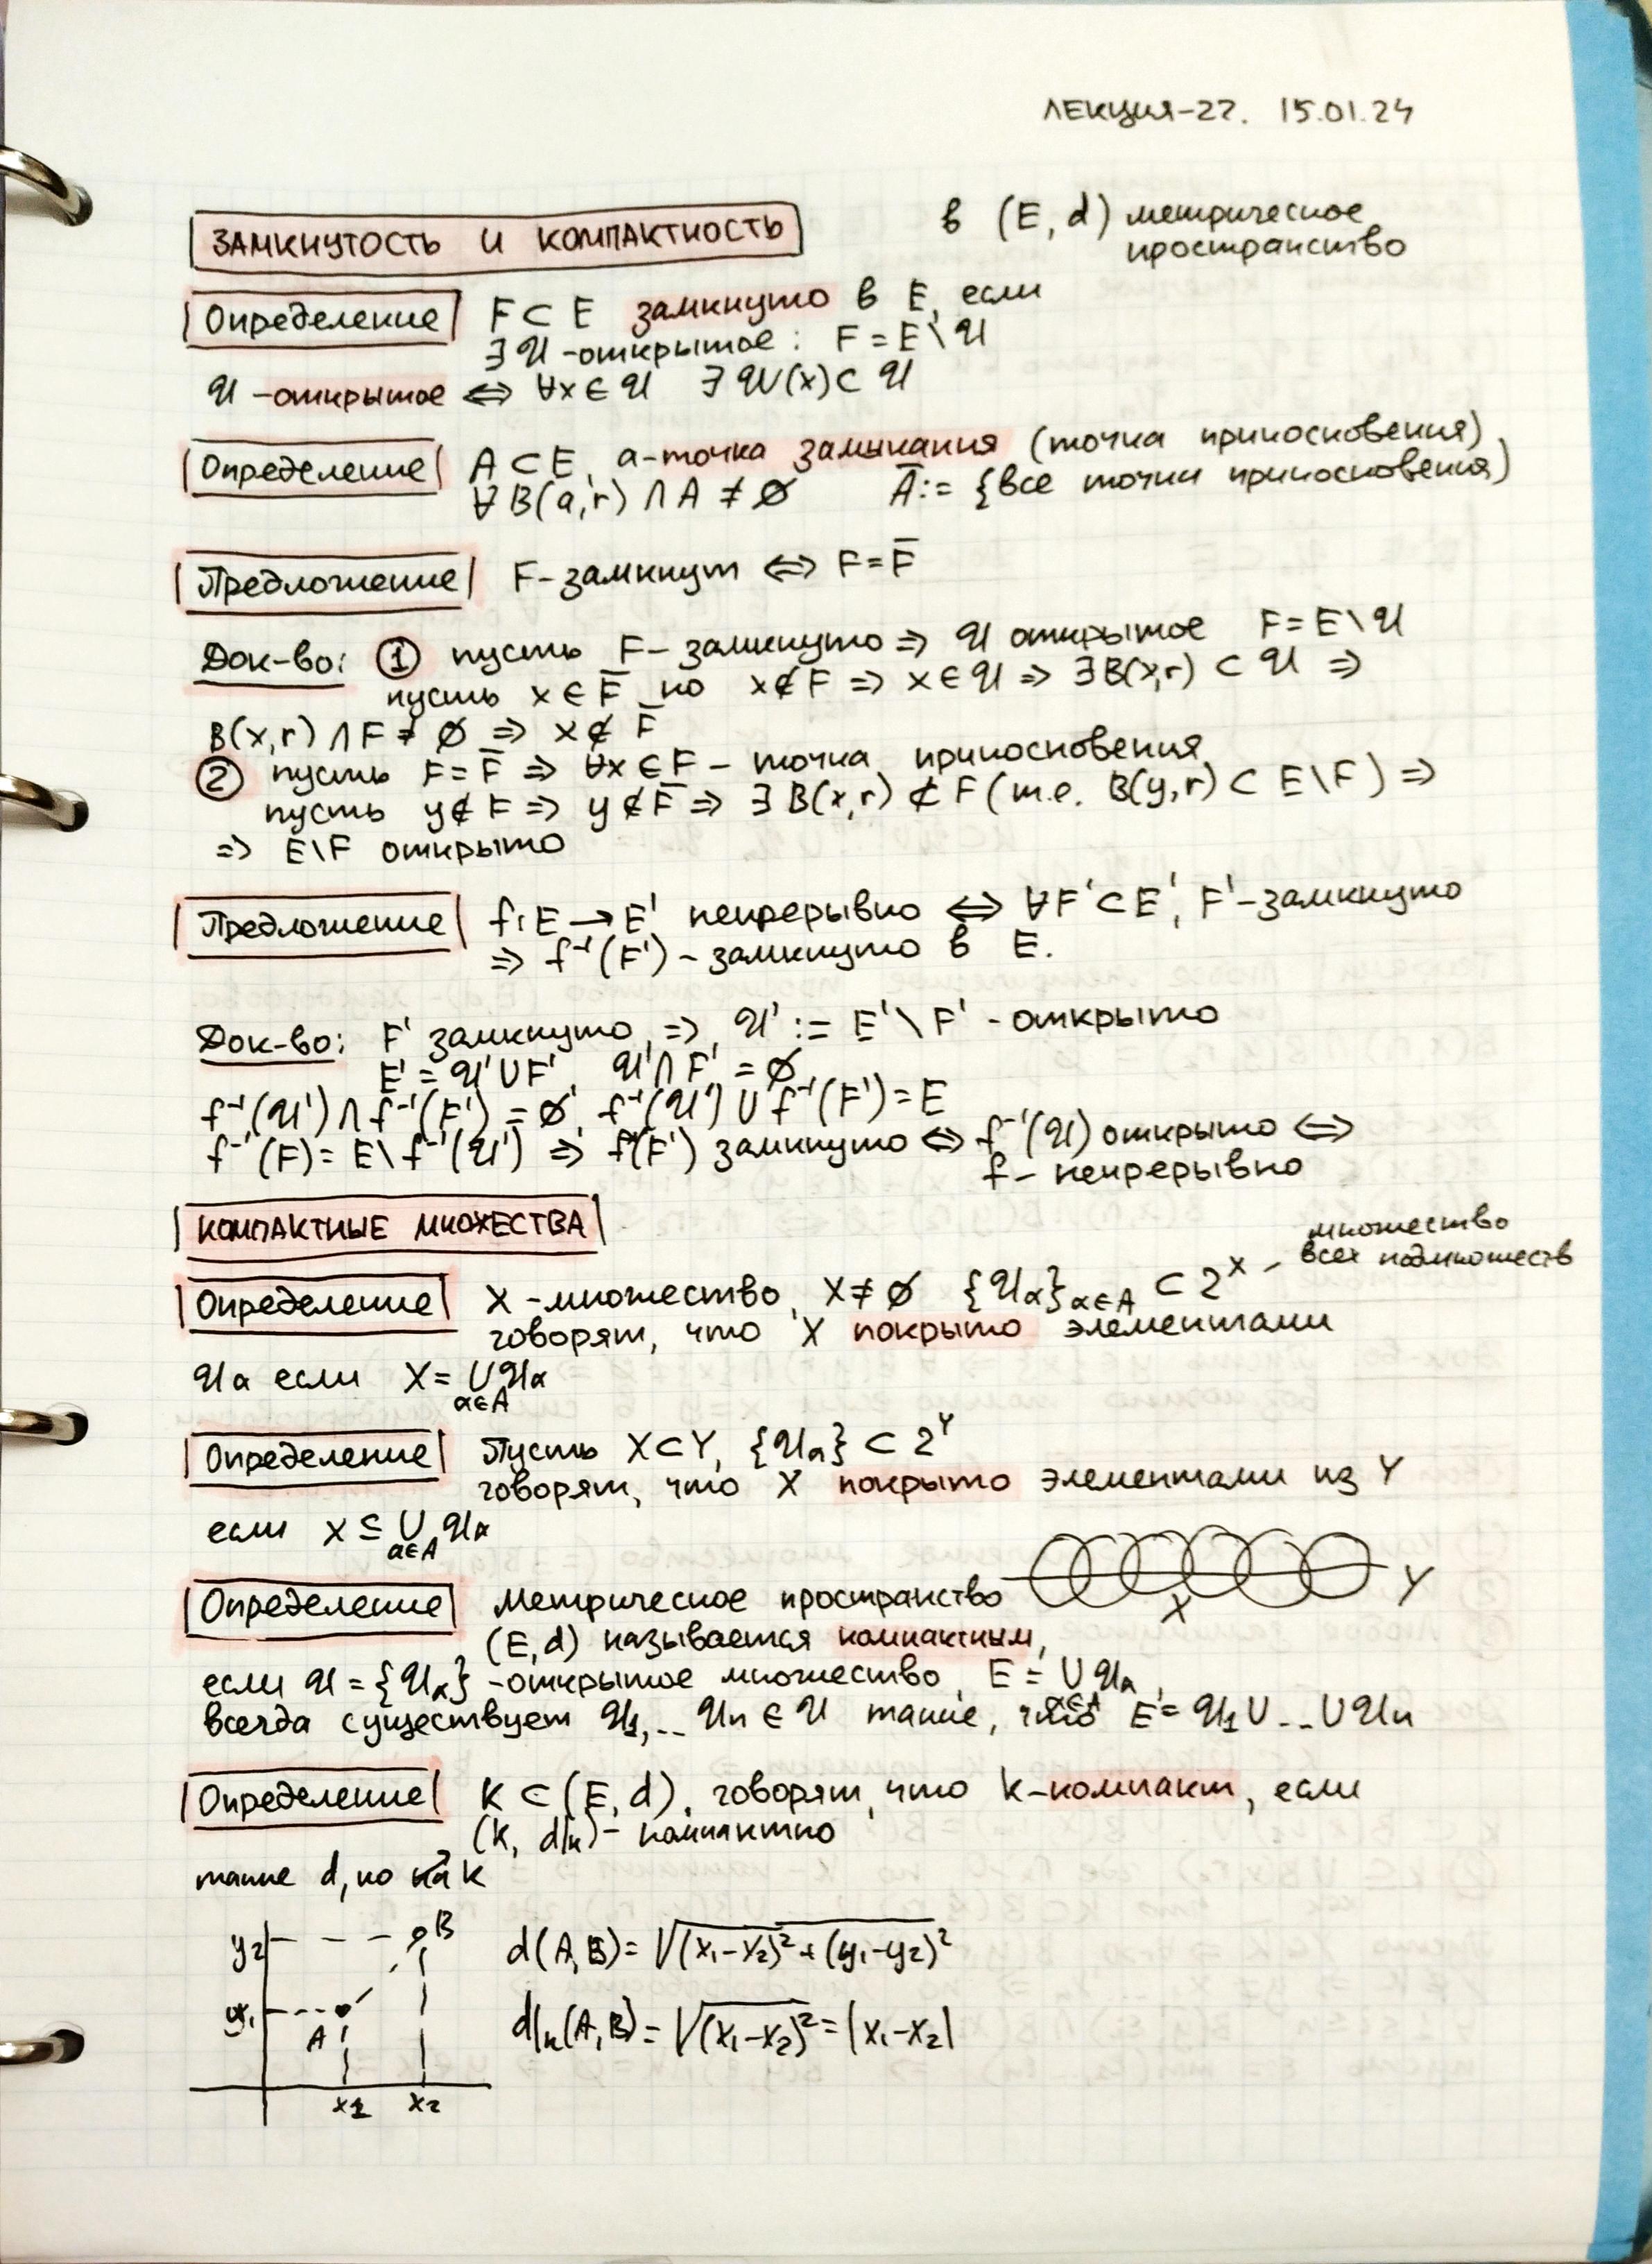 ЛЕКЦИЯ-22. 15.01.24
ЗАМКНУТОСТЬ И КОМПАКТНОСТЬ
в (E, d) метрическое
пространство
Определение F ⊂ E замкнуто в E, если
∃ U -открытое : F = E \ U
U -открытое ⇔ ∀x ∈ U ∃ U(x) ⊂ U
Определение A ⊂ E, a-точка замыкания (точка прикосновения)
∀ B(a,r) ∩ A ≠ ∅ Ā := {все точки прикосновения}
Предложение F-замкнут ⇔ F = F̄
Док-во: ① пусть F- замкнуто ⇒ U открытое F = E \ U
пусть x ∈ F̄ но x ∉ F ⇒ x ∈ U ⇒ ∃ B(x,r) ⊂ U ⇒
B(x,r) ∩ F ≠ ∅ ⇒ x ∉ F̄
② пусть F = F̄ ⇒ ∀x ∈ F - точка прикосновения
пусть y ∉ F ⇒ y ∉ F̄ ⇒ ∃ B(x,r) ⊄ F (т.е. B(y,r) ⊂ E\F) ⇒
⇒ E\F открыто
Предложение f: E → E' непрерывно ⇔ ∀F' ⊂ E', F'-замкнуто
⇒ f⁻¹(F') - замкнуто в E.
Док-во: F' замкнуто, ⇒ U' := E' \ F' - открыто
E' = U' ∪ F', U' ∩ F' = ∅
f⁻¹(U') ∩ f⁻¹(F') = ∅, f⁻¹(U') ∪ f⁻¹(F') = E
f⁻¹(F) = E \ f⁻¹(U') ⇒ f(F') замкнуто ⇔ f⁻¹(U) открыто ⇔
f - непрерывно
КОМПАКТНЫЕ МНОЖЕСТВА
множество
всех подмножеств
Определение X -множество, X ≠ ∅ {Uα}α∈A ⊂ 2^X -
говорят, что X покрыто элементами
Uα если X = ∪ Uα
α∈A
Определение Пусть X ⊂ Y, {Uα} ⊂ 2^Y
говорят, что X покрыто элементами из Y
если X ⊆ ∪ Uα
α∈A
X Y
Определение Метрическое пространство
(E, d) называется компактным,
если U = {Uα} -открытое множество, E = ∪ Uα,
α∈A
всегда существует U1,.. Un ∈ U такие, что E = U1 ∪ .. ∪ Un
Определение K ⊂ (E, d), говорят, что K-компакт, если
(K, d|K) - компактно
такие d, но на K
y2 B
y1 A
x1 x2
d(A,B) = √(x1-x2)² + (y1-y2)²
d|K(A,B) = √(x1-x2)² = |x1-x2|